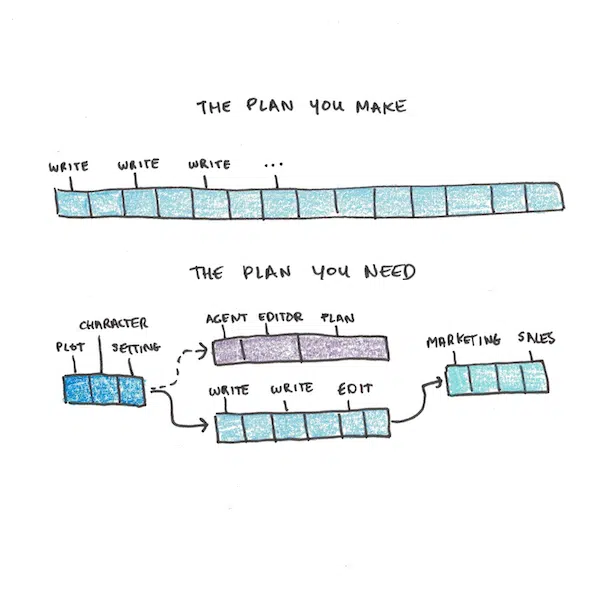 THE PLAN YOU MAKE
WRITE WRITE WRITE ...
THE PLAN YOU NEED
CHARACTER
PLOT SETTING
AGENT EDITOR PLAN
WRITE WRITE EDIT
MARKETING SALES